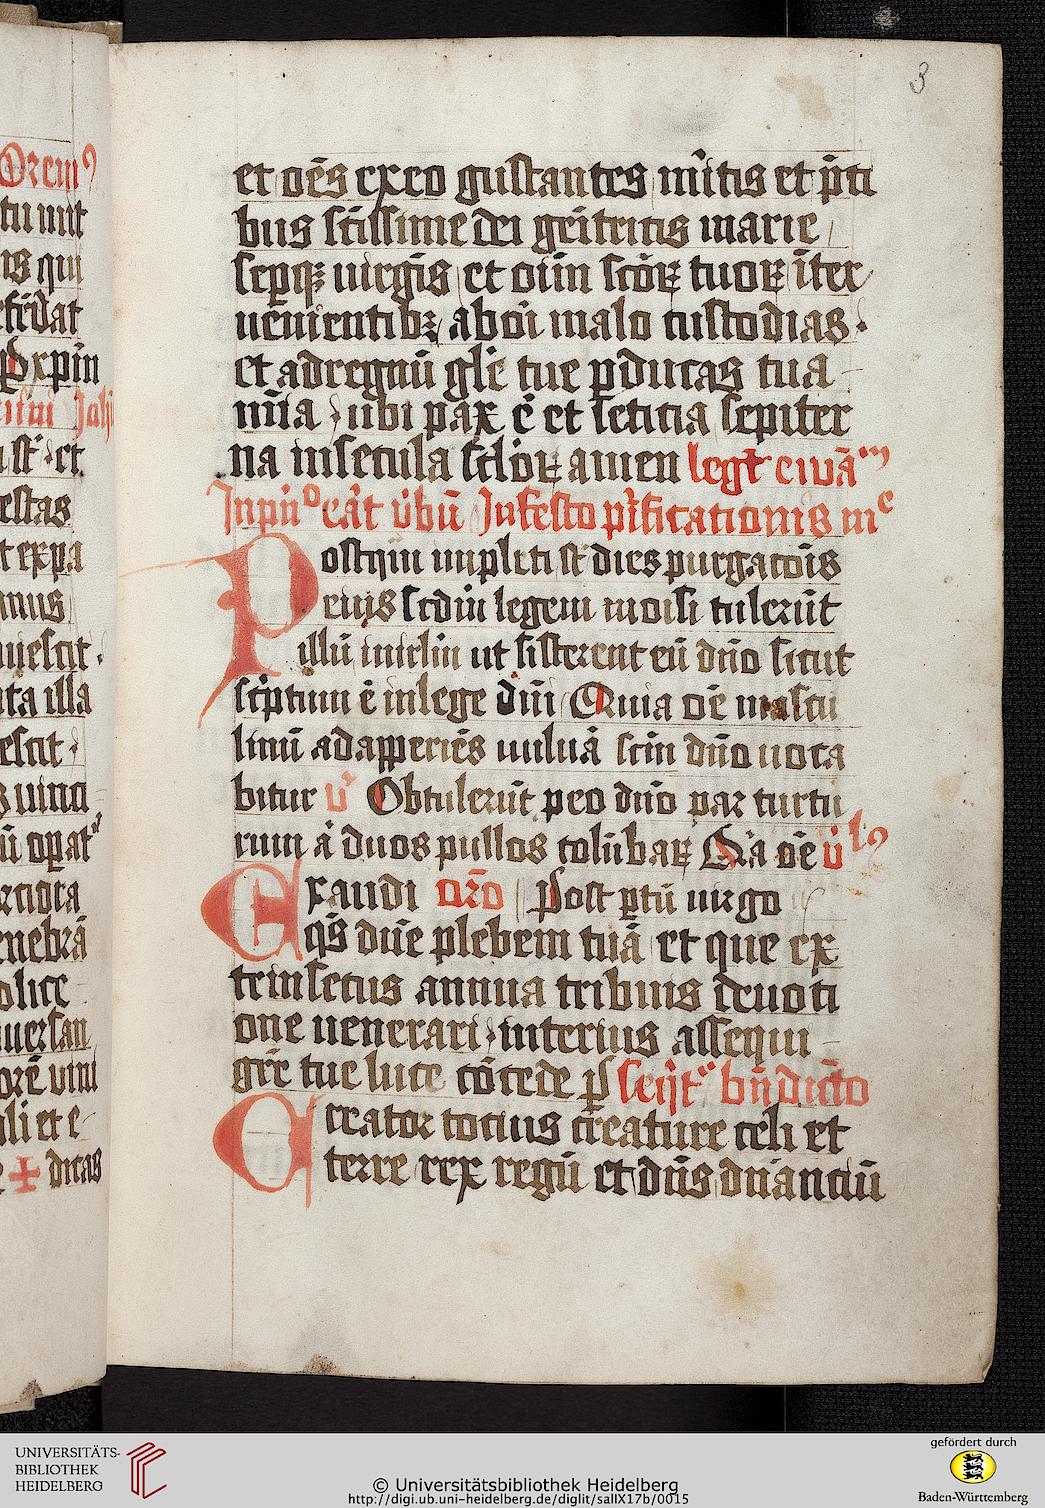 3
et om̄s ex eo gustantes m̄itis et p̄ci
bus sc̄issime dei genitricis marie
sep̄q₃ uirgīs et oīm sc̄oꝝ tuoꝝ īter
uenientib₃ ab oī malo custodias.
et ad regnū gl̄e tue ꝑducas tua
m̄ia, ubi pax ē et leticia sempiter
na in secula sc̄loꝝ amen legr̄ ewā
In pn̊ eāt ūbū In festo pͥficationis
Postqm̄ impleti st̄ dies purgacōis
eius scd̄m legem moisi tulerūt
illū in irl̄m ut sisterent eū dn̄o sicut
sc̄ptum ē in lege dn̄i Quia om̄e mascu
linū adaꝑꝑiēs uuluā sc̄m dn̄o uoca
bitur v̄ Obtulerūt ꝓ eo dn̄o par turtu
rum ā duos pullos colūbaꝝ Qͥa om̄e v̄
Exaudi or̄o Post ꝑtū uirgo
qs̄ dn̄e plebem tuā et que ex
trinsecus annua tribuis deuoti
one uenerari, interius assequi
gr̄e tue luce cōcede ꝑ seqͥt̄ bn̄dictio
Creator tocius creature celi et
terre rex regū et dn̄s dn̄anciū
Orem⁹
ns qui
st̄. et
estas
mus
ta illa
uersan
dicas
UNIVERSITÄTS-
BIBLIOTHEK
HEIDELBERG
© Universitätsbibliothek Heidelberg
http://digi.ub.uni-heidelberg.de/diglit/salIX17b/0015
gefördert durch
Baden-Württemberg